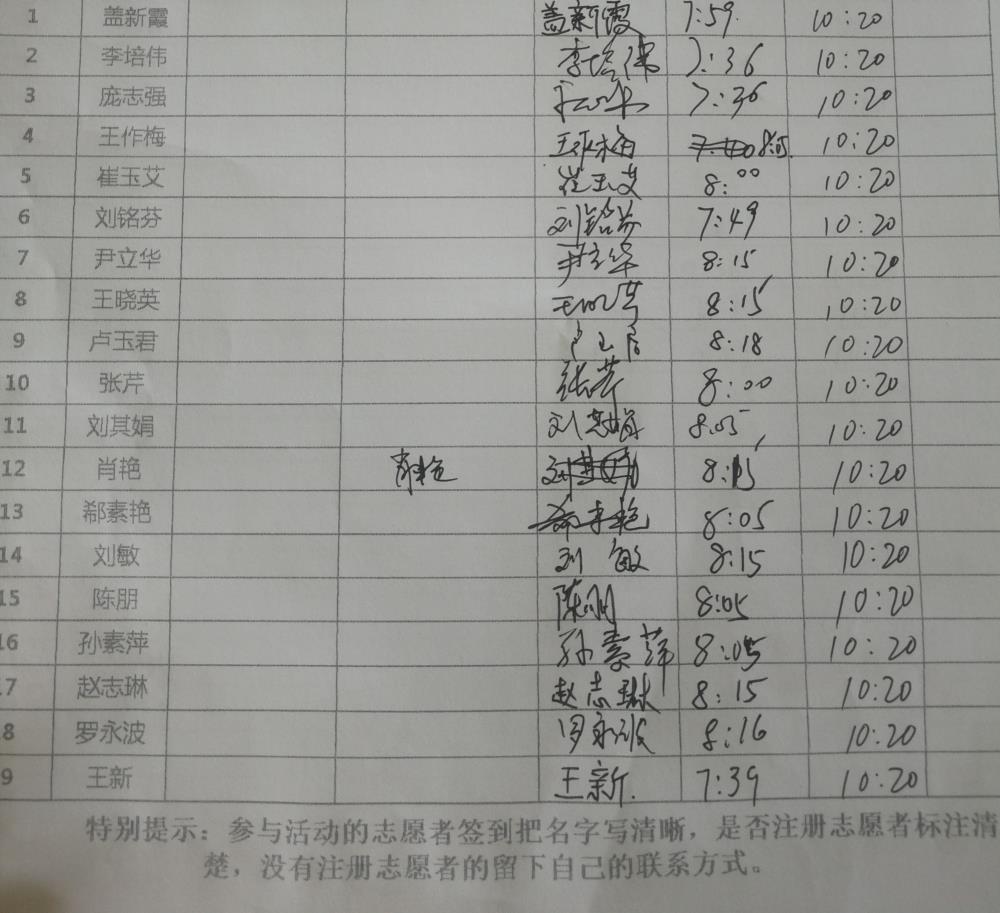 1 盖新霞 盖新霞 7:59. 10:20
2 李培伟 李培伟 7:36 10:20
3 庞志强 7:36 10:20
4 王作梅 王作梅 8:05. 10:20
5 崔玉艾 崔玉艾 8:00 10:20
6 刘铭芬 刘铭芬 7:49 10:20
7 尹立华 尹立华 8:15 10:20
8 王晓英 王晓英 8:15 10:20
9 卢玉君 卢玉君 8:18 10:20
10 张芹 张芹 8:00 10:20
11 刘其娟 刘其娟 8:05 10:20
12 肖艳 肖艳 8:15 10:20
13 郗素艳 8:05 10:20
14 刘敏 刘敏 8:15 10:20
15 陈朋 陈朋 8:05 10:20
16 孙素萍 孙素萍 8:05 10:20
7 赵志琳 赵志琳 8:15 10:20
8 罗永波 罗永波 8:16 10:20
9 王新 王新. 7:39 10:20
特别提示：参与活动的志愿者签到把名字写清晰，是否注册志愿者标注清
楚，没有注册志愿者的留下自己的联系方式。